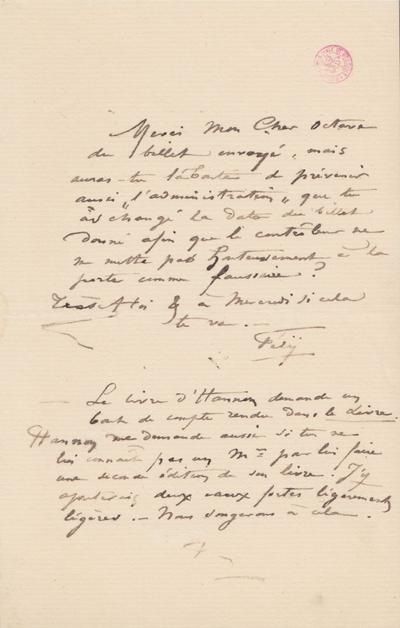 Merci Mon Cher Octave
du billet envoyé, mais
auras-tu la bonté de prévenir
aussi "l'administration" que tu
as changé la Date du billet
donné afin que le contrôleur ne
me mette pas honteusement à la
porte comme faussaire?
à toi & à Mercredi si cela
te va. —
Fély
Le livre d'Hannon demande un
bout de compte rendu dans le Livre.
Hannon me demande aussi si tu ne
lui connais pas un M. par lui faire
une seconde édition de son livre! J'y
ajouterais deux eaux fortes légèrement
légères. — Nous songerons à cela.